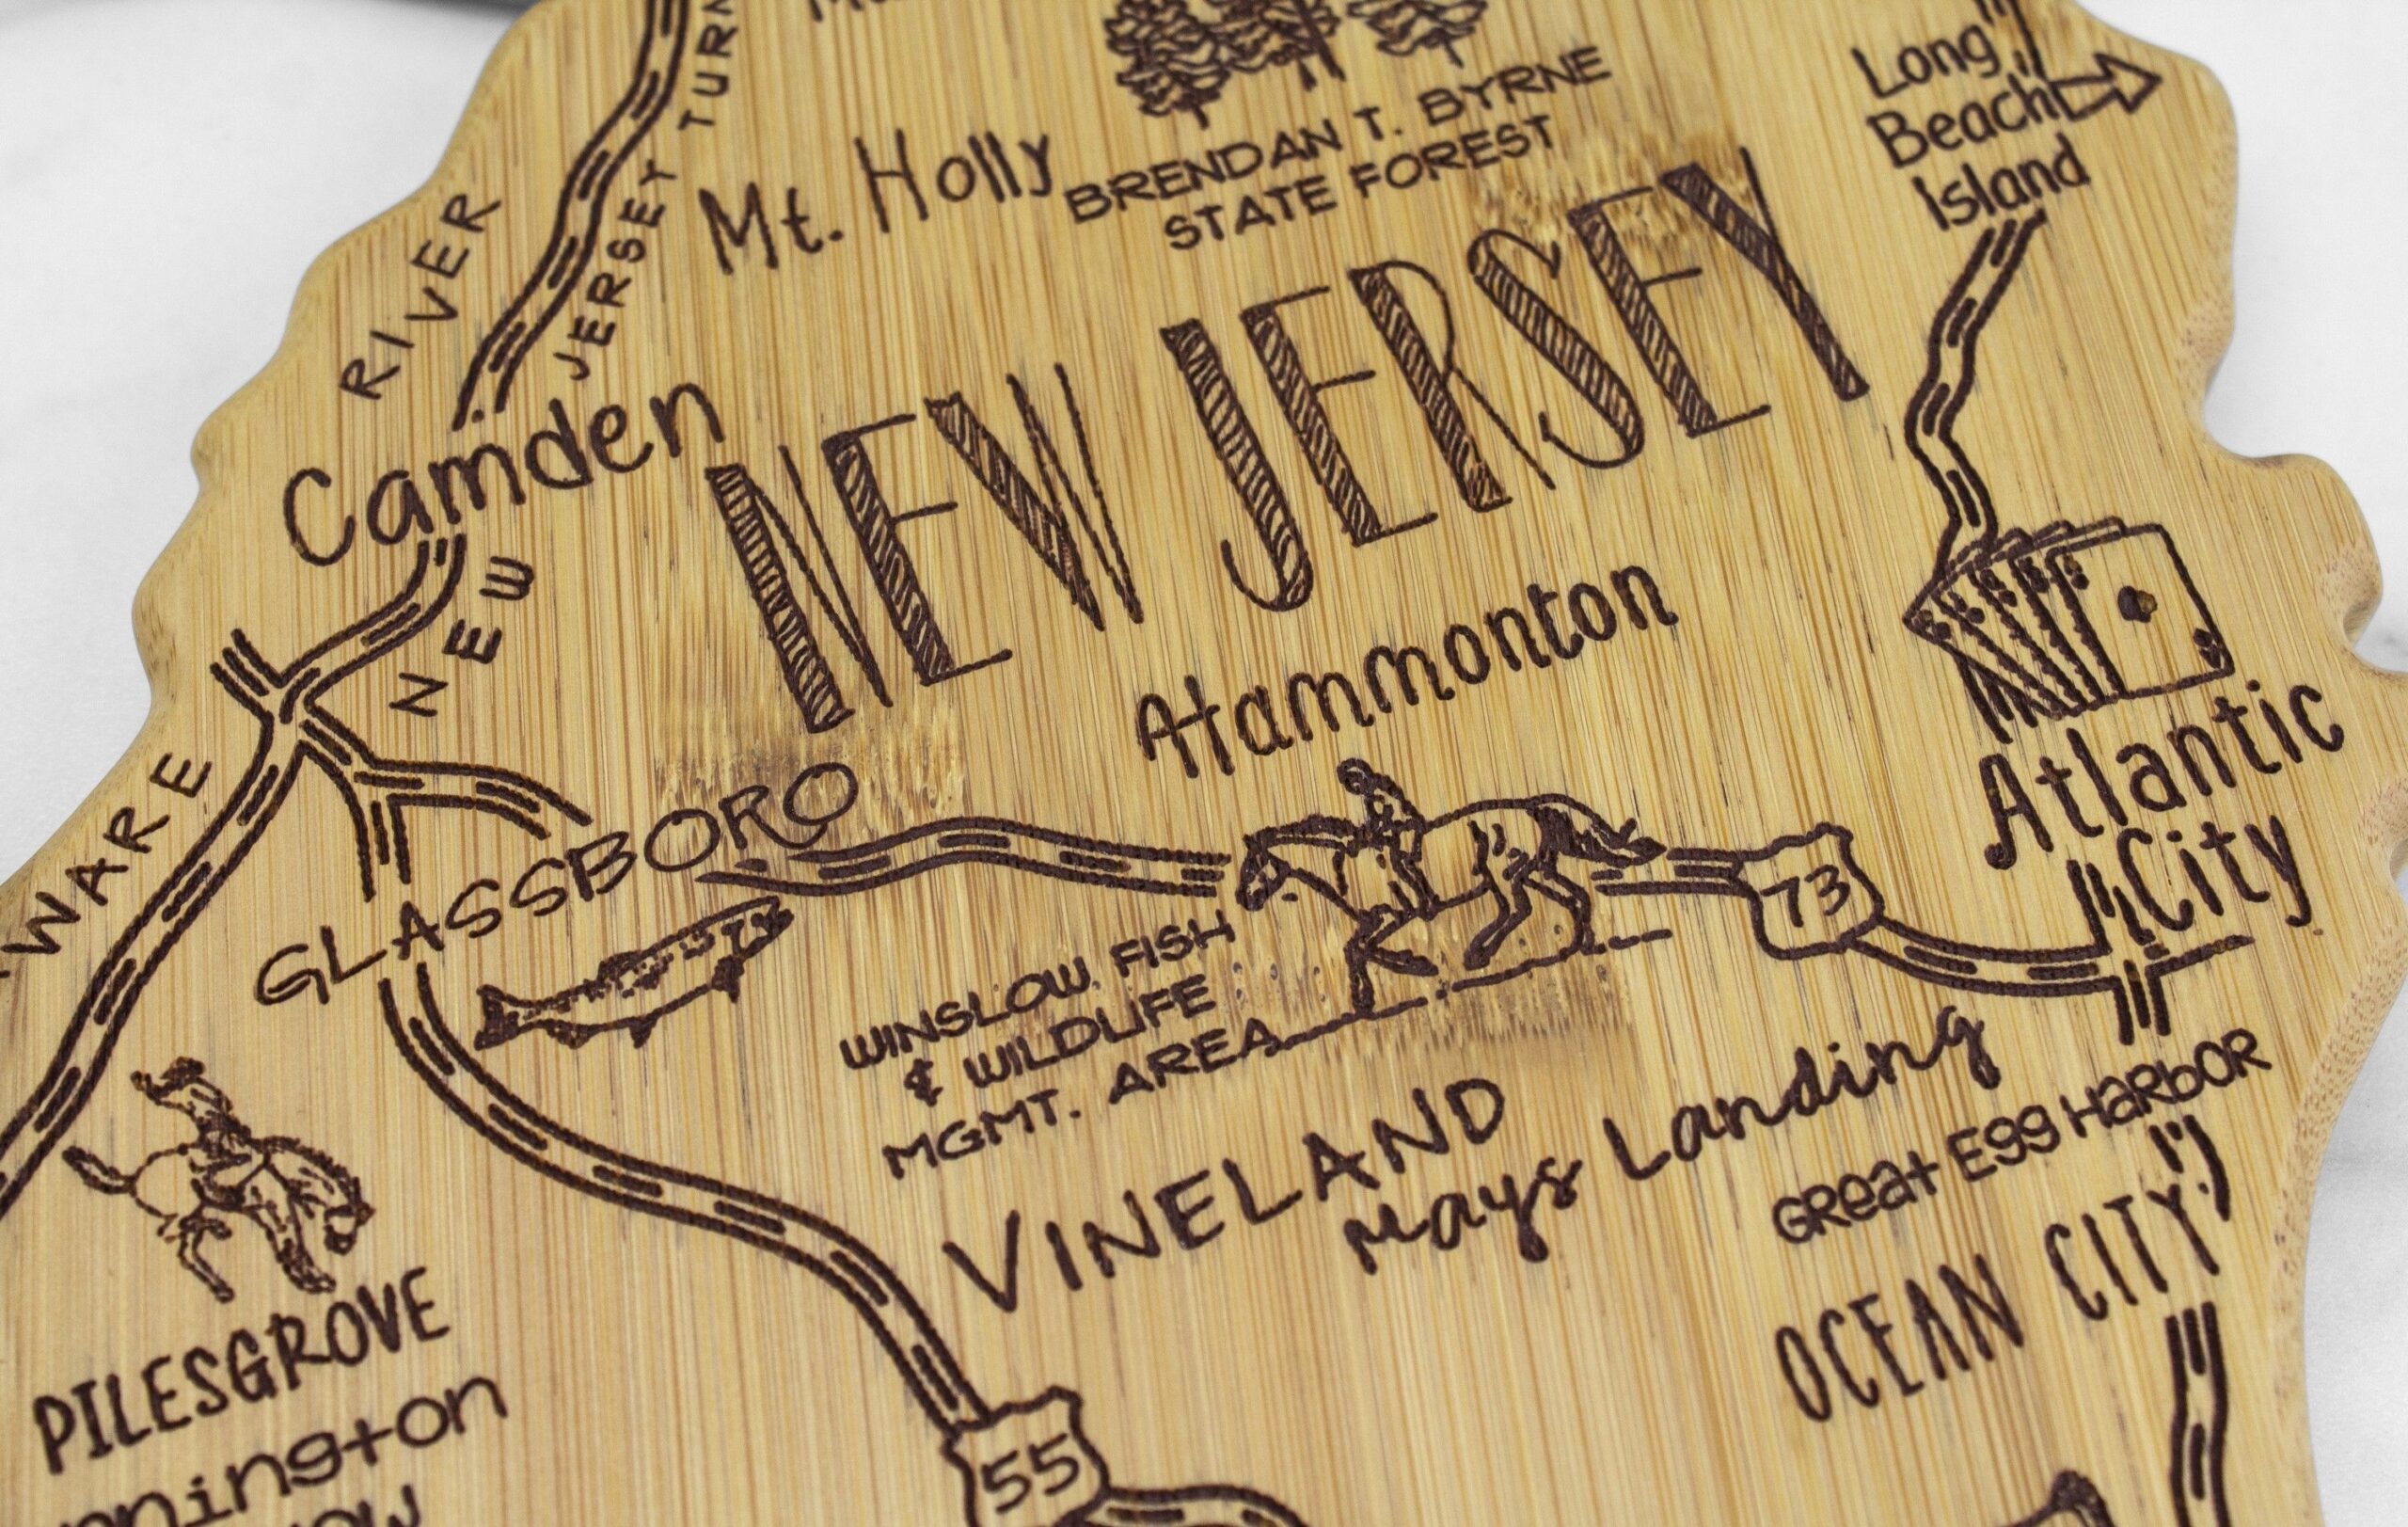 RIVER
NEW JERSEY
Mt. Holly
BRENDAN T. BYRNE
STATE FOREST
Long
Beach
Island
Camden
NEW JERSEY
Hammonton
Atlantic
City
GLASSBORO
73
WINSLOW FISH
& WILDLIFE
MGMT. AREA
VINELAND
Mays Landing
Great Egg Harbor
OCEAN CITY
PILESGROVE
55